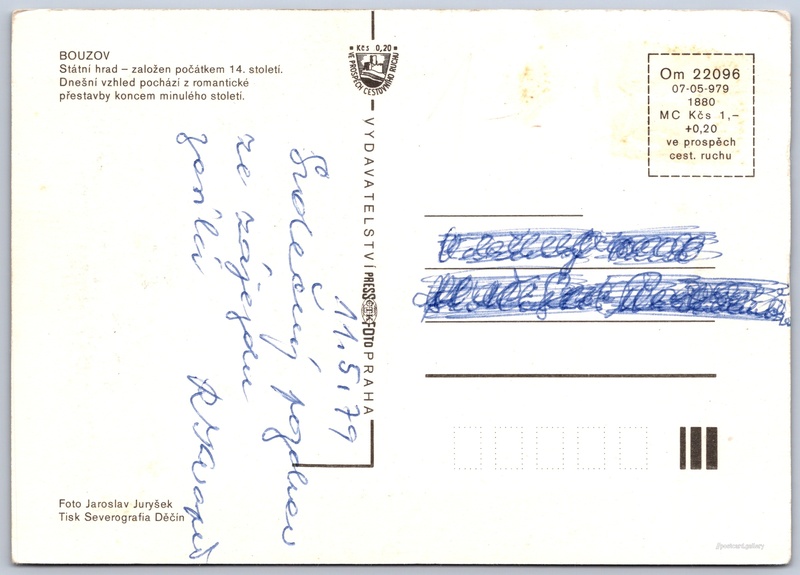 BOUZOV
Státní hrad – založen počátkem 14. století.
Dnešní vzhled pochází z romantické
přestavby koncem minulého století.
Kčs 0,20
VE PROSPĚCH CESTOVNÍHO RUCHU
VYDAVATELSTVÍ PRESSFOTO PRAHA
ČTK
Om 22096
07-05-979
1880
MC Kčs 1,–
+0,20
ve prospěch
cest. ruchu
11.5.79
Srdečný pozdrav
ze zájezdu
zasílá
Foto Jaroslav Juryšek
Tisk Severografia Děčín